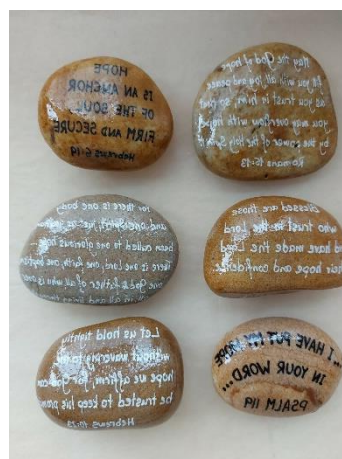 HOPE
IS AN ANCHOR
OF THE SOUL
FIRM AND SECURE
Hebrews 6:19
May the God of hope
fill you with all joy and peace
as you trust in him, so that
you may overflow with hope
by the power of the Holy Spirit
Romans 15:13
for there is one body
and one Spirit, just as you
been called to one glorious hope
there is one Lord one faith, one baptism
one God & father of all who is
all and in all and living
Blessed are those
who trust in the Lord
and have made the Lord
their hope and confidence
Let us hold tightly
without wavering to the
hope we affirm, for God can
be trusted to keep his promise
Hebrews 10:23
...I HAVE PUT MY HOPE
IN YOUR WORD...
PSALM 119